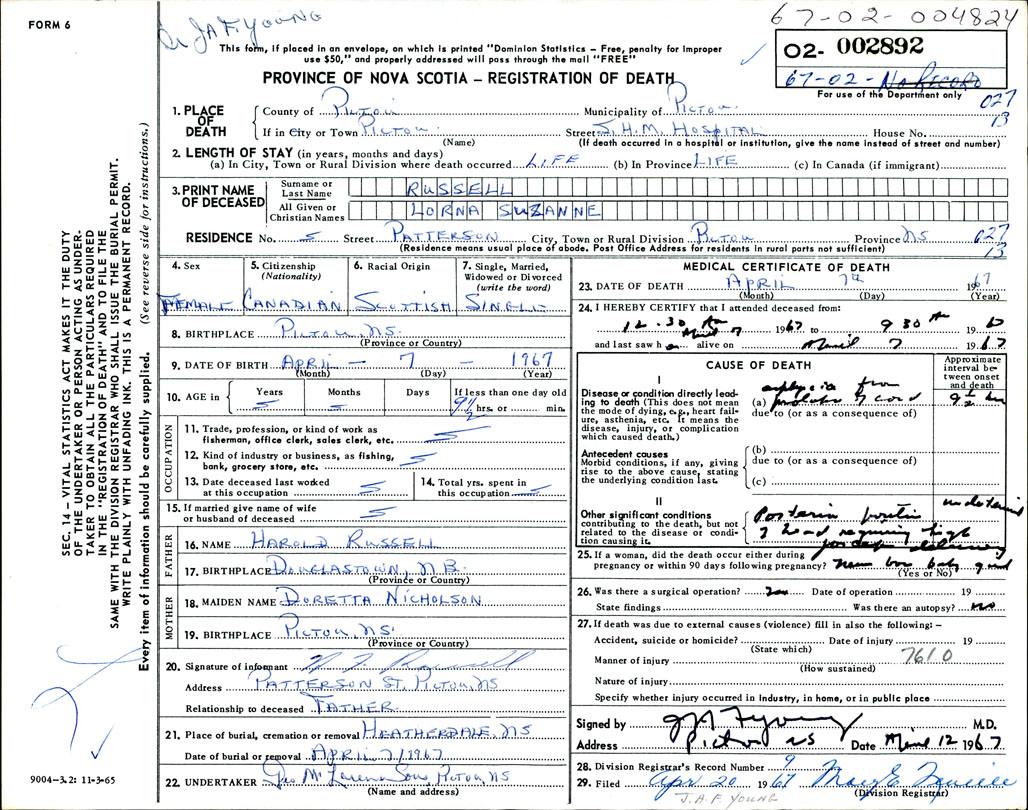 FORM 6
Dr JAF. YOUNG
67-02-004824
This form, if placed in an envelope, on which is printed "Dominion Statistics – Free, penalty for improper
use $50," and properly addressed will pass through the mail "FREE"
02- 002892
67-02- No Record
For use of the Department only
PROVINCE OF NOVA SCOTIA – REGISTRATION OF DEATH
027
13
1. PLACE OF DEATH
County of PICTOU Municipality of PICTOU
If in City or Town PICTOU Street S.H.M. HOSPITAL House No.
(Name) (If death occurred in a hospital or institution, give the name instead of street and number)
2. LENGTH OF STAY (in years, months and days)
(a) In City, Town or Rural Division where death occurred LIFE (b) In Province LIFE (c) In Canada (if immigrant)
3. PRINT NAME OF DECEASED
Surname or Last Name RUSSELL
All Given or Christian Names LORNA SUZANNE
RESIDENCE No. Street PATTERSON City, Town or Rural Division PICTOU Province NS
027
13
(Residence means usual place of abode. Post Office Address for residents in rural parts not sufficient)
4. Sex
FEMALE
5. Citizenship (Nationality)
CANADIAN
6. Racial Origin
SCOTTISH
7. Single, Married, Widowed or Divorced (write the word)
SINGLE
8. BIRTHPLACE PICTOU, NS.
(Province or Country)
9. DATE OF BIRTH APRIL – 7 – 1967
(Month) (Day) (Year)
10. AGE in Years Months Days If less than one day old
9½ hrs. or min.
OCCUPATION
11. Trade, profession, or kind of work as
fisherman, office clerk, sales clerk, etc.
12. Kind of industry or business, as fishing,
bank, grocery store, etc.
13. Date deceased last worked
at this occupation
14. Total yrs. spent in
this occupation
15. If married give name of wife
or husband of deceased
FATHER
16. NAME HAROLD RUSSELL
17. BIRTHPLACE DOUGLASTOWN, N.B.
(Province or Country)
MOTHER
18. MAIDEN NAME DORETTA NICHOLSON
19. BIRTHPLACE PICTOU, NS.
(Province or Country)
20. Signature of informant H J Russell
Address PATTERSON ST. PICTOU, NS
Relationship to deceased FATHER
21. Place of burial, cremation or removal HEATHERDALE, NS
Date of burial or removal APRIL 7/1967
22. UNDERTAKER Geo McLaren & Sons, PICTOU, NS
(Name and address)
MEDICAL CERTIFICATE OF DEATH
23. DATE OF DEATH APRIL 7th 1967
(Month) (Day) (Year)
24. I HEREBY CERTIFY that I attended deceased from:
12.30 Am April 7 1967 to 9 30 Am 19 67
and last saw h alive on April 7 1967
CAUSE OF DEATH
Approximate interval between onset and death
I
Disease or condition directly leading to death (This does not mean
the mode of dying, e.g., heart failure, asthenia, etc. It means the
disease, injury, or complication
which caused death.)
(a) from prolapse of cord 9½ hrs
due to (or as a consequence of)
Antecedent causes
Morbid conditions, if any, giving
rise to the above cause, stating
the underlying condition last.
(b)
due to (or as a consequence of)
(c)
II
Other significant conditions
contributing to the death, but not
related to the disease or condition causing it.
Posterior position
of head requiring high
forceps delivery
25. If a woman, did the death occur either during
pregnancy or within 90 days following pregnancy? New born baby
(Yes or No)
26. Was there a surgical operation? Date of operation 19
State findings Was there an autopsy? No
27. If death was due to external causes (violence) fill in also the following: –
Accident, suicide or homicide? Date of injury 19
(State which)
Manner of injury 7610
(How sustained)
Nature of injury
Specify whether injury occurred in industry, in home, or in public place
Signed by JAF Young M.D.
Address Pictou NS Date April 12 1967
28. Division Registrar's Record Number 9
29. Filed Apr 20 1967
(Division Registrar)
J.A.F. YOUNG
SEC. 14 – VITAL STATISTICS ACT MAKES IT THE DUTY
OF THE UNDERTAKER OR PERSON ACTING AS UNDER-
TAKER TO OBTAIN ALL THE PARTICULARS REQUIRED
IN THE "REGISTRATION OF DEATH" AND TO FILE THE
SAME WITH THE DIVISION REGISTRAR WHO SHALL ISSUE THE BURIAL PERMIT.
WRITE PLAINLY WITH UNFADING INK. THIS IS A PERMANENT RECORD.
Every item of information should be carefully supplied. (See reverse side for instructions.)
9004-3.2: 11-3-65